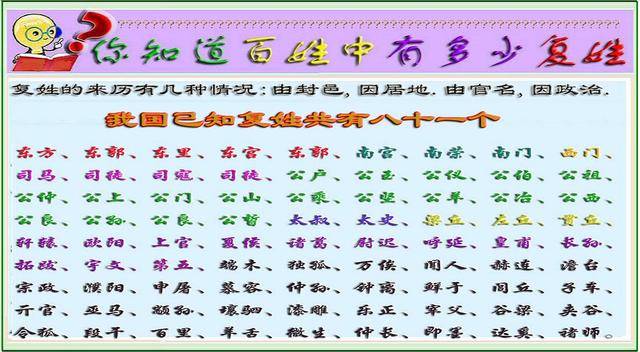 你知道百姓中有多少复姓
复姓的来历有几种情况:由封邑,因居地.由官名,因政治.
我国已知复姓共有八十一个
东方、东郭、东里、东宫、东郭、南宫、南荣、南门、西门、
司马、司徒、司寇、司徒、公户、公玉、公仪、公伯、公祖、
公仲、公上、公门、公山、公乘、公坚、公羊、公冶、公西、
公良、公孙、公良、公晳、太叔、太史、梁丘、左丘、贯丘、
轩辕、欧阳、上官、夏侯、诸葛、尉迟、呼延、皇甫、长孙、
拓跋、宇文、第五、端木、独孤、万俟、闻人、赫连、澹台、
宗政、濮阳、申屠、慕容、仲孙、钟离、鲜于、闾丘、子车、
亓官、巫马、颛孙、壤驷、漆雕、乐正、宰父、谷梁、夹谷、
令狐、段干、百里、羊舌、微生、仲长、即墨、达奚、诸师。